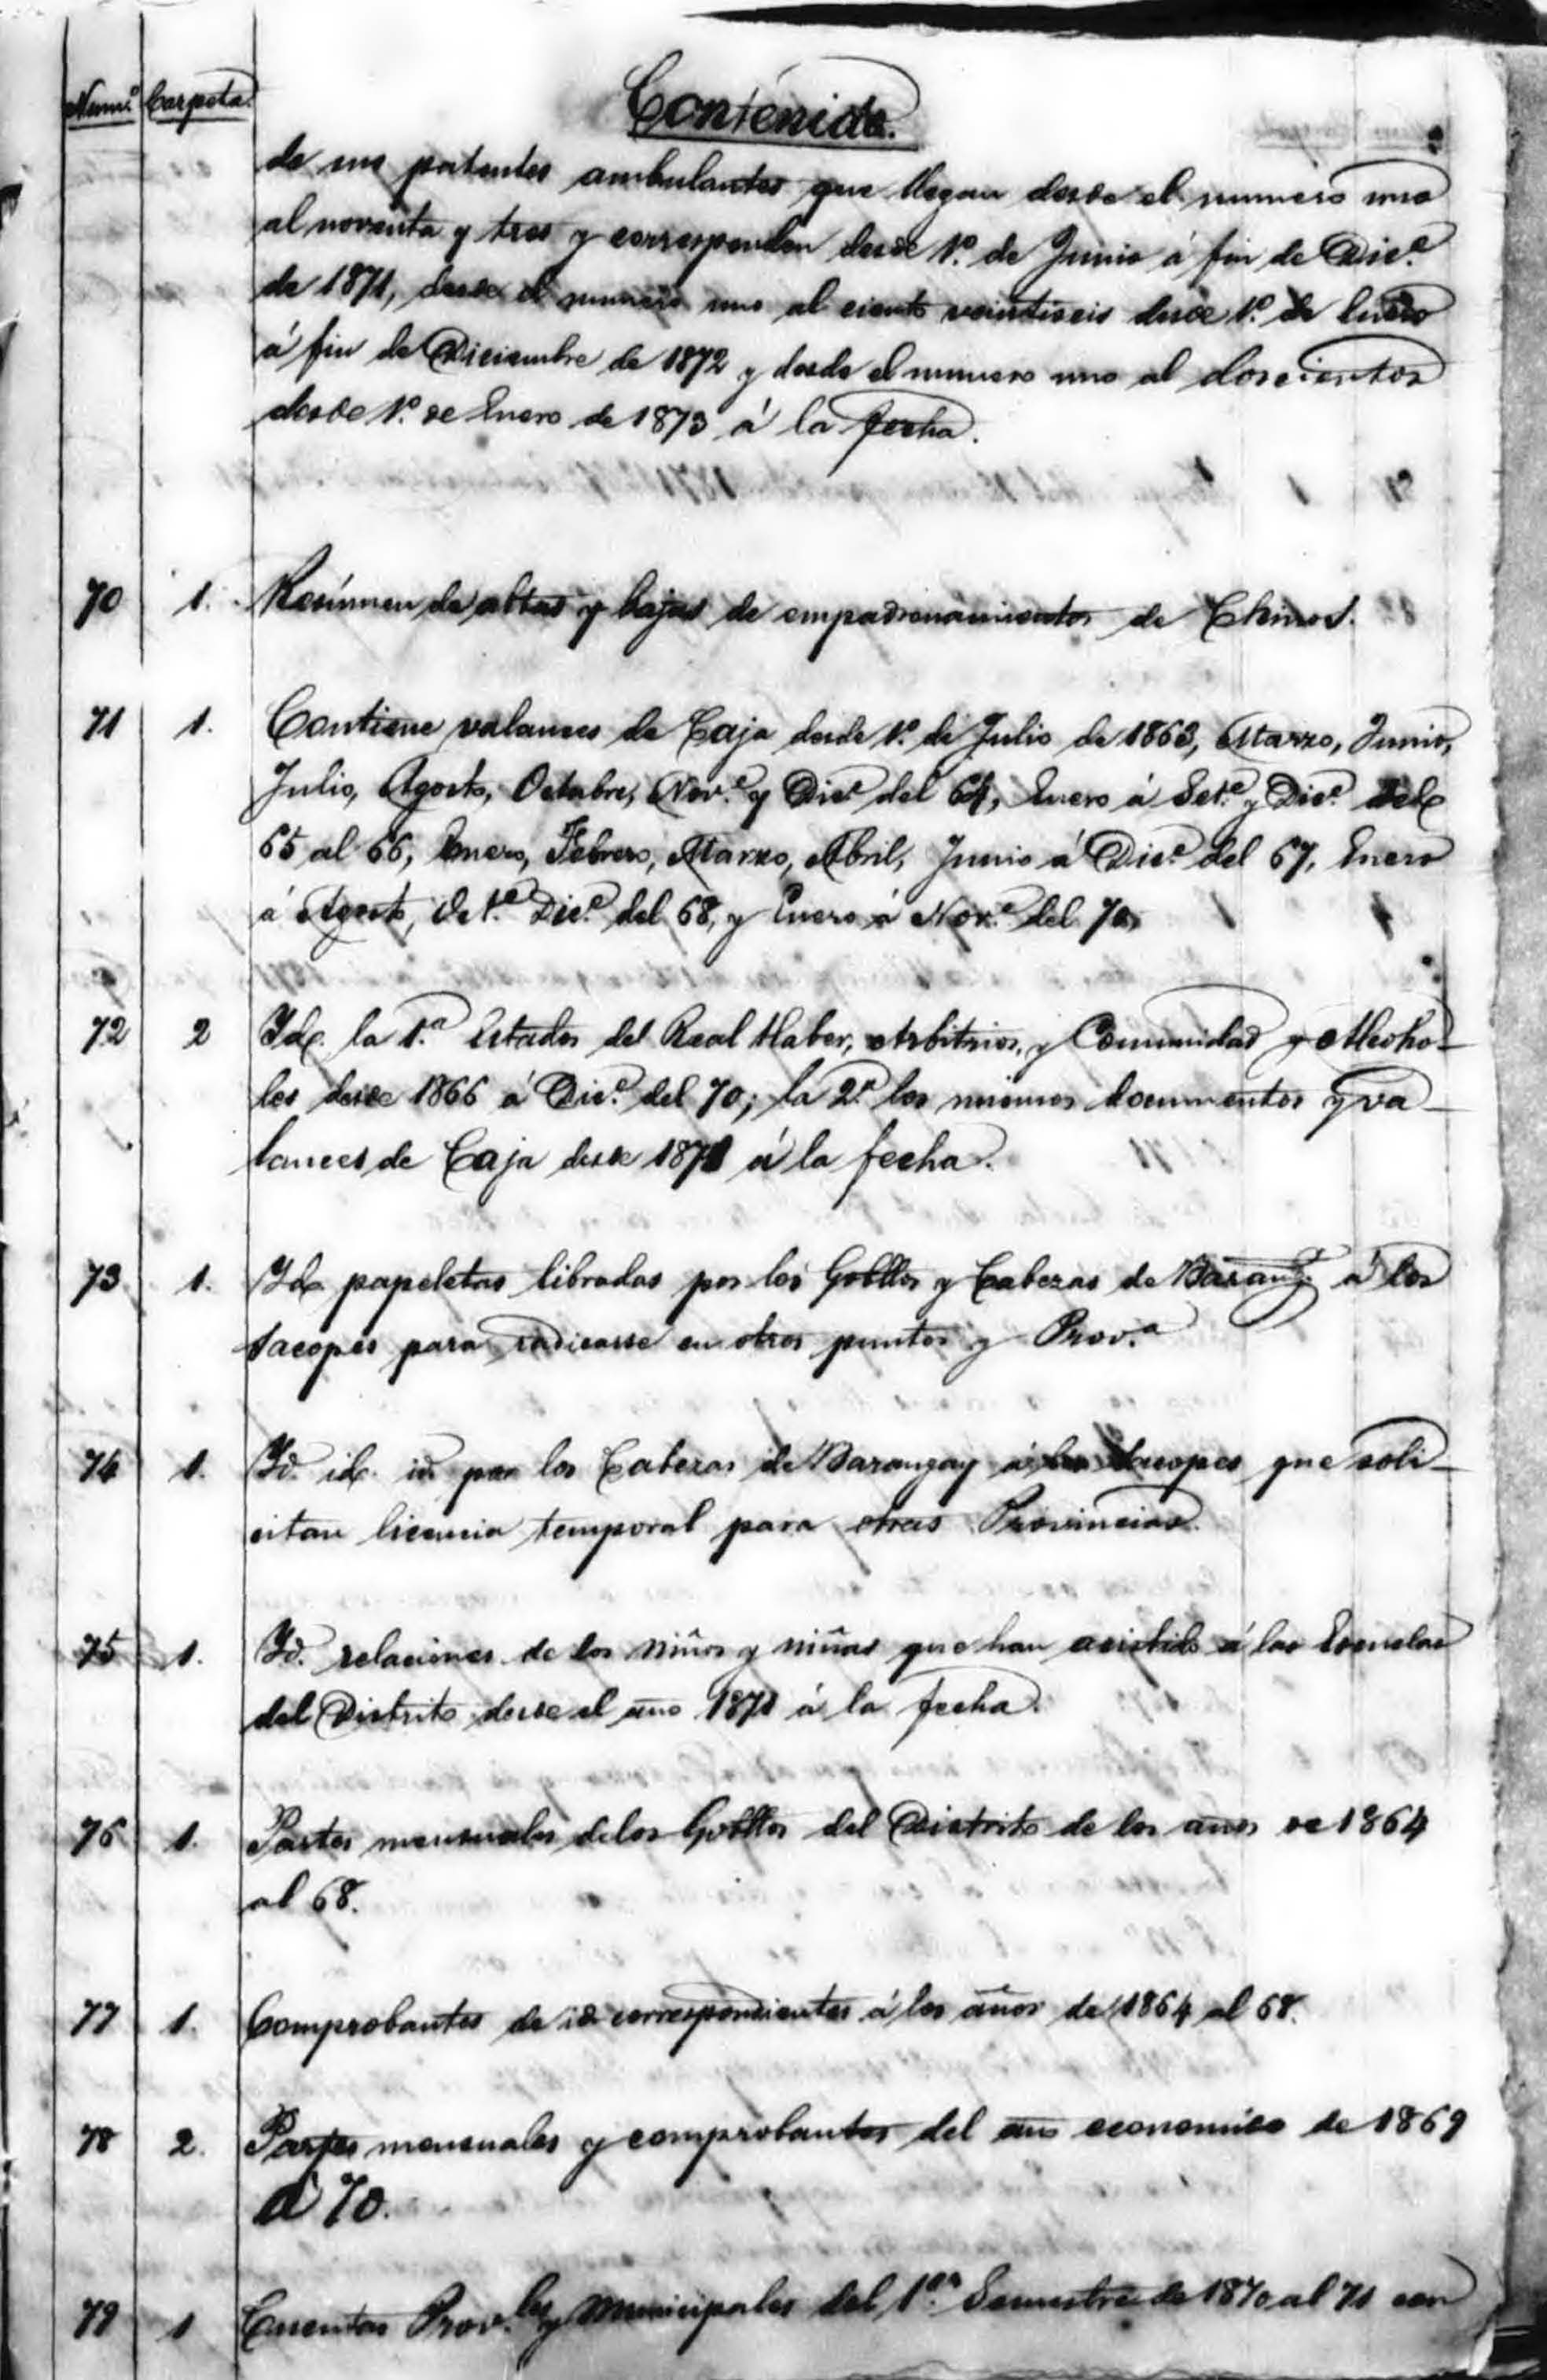 Num.º Carpeta. Contenido.
de sus patentes ambulantes que llegan desde el numero uno
al noventa y tres y corresponden desde 1º. de Junio á fin de Dic.e
de 1871, desde el numero uno al ciento veintiseis desde 1º. de Enero
á fin de Diciembre de 1872 y desde el numero uno al doscientos
desde 1º. de Enero de 1873 á la fecha.
70 1. Resúmen de altas y bajas de empadronamientos de Chinos.
71 1. Contiene valances de Caja desde 1º. de Julio de 1863, Marzo, Junio,
Julio, Agosto, Octubre, Nov.e y Dic.e del 64, Enero á Set.e y Dic.e del
65 al 66, Enero, Febrero, Marzo, Abril, Junio á Dic.e del 67, Enero
á Agosto, Oct.e Dic.e del 68, y Enero á Nov.e del 70,
72 2 Yd. la 1.a Estados del Real Haber, Arbitrios, y Comunidad y Alcoho-
les desde 1866 á Dic.e del 70; la 2.a los mismos documentos y va-
lances de Caja desde 1871 á la fecha.
73 1. Yd. papeletas libradas por los Gobllos y Cabezas de Barang.y á los
sacopes para radicarse en otros puntos y Prov.a
74 1. Yd. id. id. por los Cabezas de Barangay á los sacopes que soli-
citan licencia temporal para otras Provincias.
75 1. Yd. relaciones de los niños y niñas que han asistido á las Escuelas
del Distrito desde el año 1871 á la fecha.
76 1. Partes mensuales de los Gobllos del Distrito de los años de 1864
al 68.
77 1. Comprobantes de id. correspondientes á los años de 1864 al 68.
78 2. Partes mensuales y comprobantes del año economico de 1869
á 70.
79 1 Cuentas Prov.les y Municipales del 1.er Semestre de 1870 al 71 con